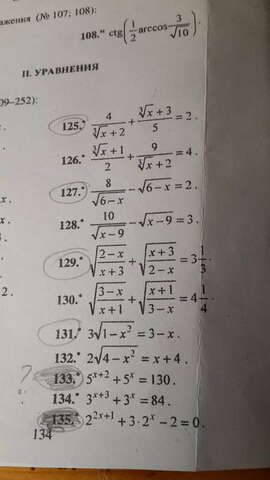 ажения (№ 107; 108):
108.* ctg(1/2 arccos 3/√10).
II. УРАВНЕНИЯ
09–252):
125.* 4/(∛x + 2) + (∛x + 3)/5 = 2.
126.* (∛x + 1)/2 + 9/(∛x + 2) = 4.
127.* 8/√(6 – x) – √(6 – x) = 2.
128.* 10/√(x – 9) – √(x – 9) = 3.
129.* √((2 – x)/(x + 3)) + √((x + 3)/(2 – x)) = 3 1/3.
130.* √((3 – x)/(x + 1)) + √((x + 1)/(3 – x)) = 4 1/4.
131.* 3√(1 – x²) = 3 – x.
132.* 2√(4 – x²) = x + 4.
133.* 5^(x+2) + 5^x = 130.
134.* 3^(x+3) + 3^x = 84.
135.* 2^(2x+1) + 3·2^x – 2 = 0.
134